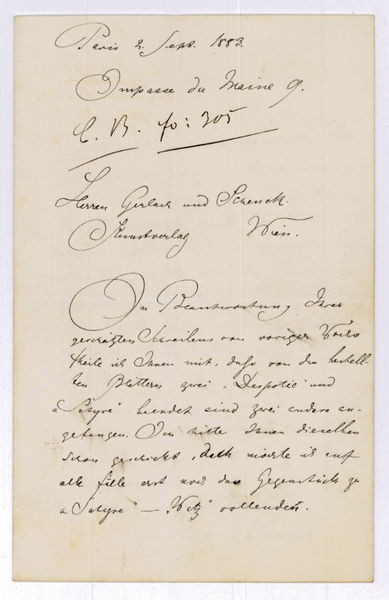 Paris 2. Sept. 1883.
Impasse du Maine 9.
C. B. fo: 305
Herren Gerlach und Schenck.
Kunstverlag Wien.
In Beantwortung Ihres
geschätzten Schreibens von voriger Woche
theile ich Ihnen mit, daß von den bestell-
ten Blättern zwei „Despotie" und
„Satyre" beendet sind zwei andere an-
gefangen. Ich hätte Ihnen dieselben
schon geschickt, doch möchte ich auf
alle fälle erst noch das Gegenstück zu
„Satyre" — „Witz" vollenden.